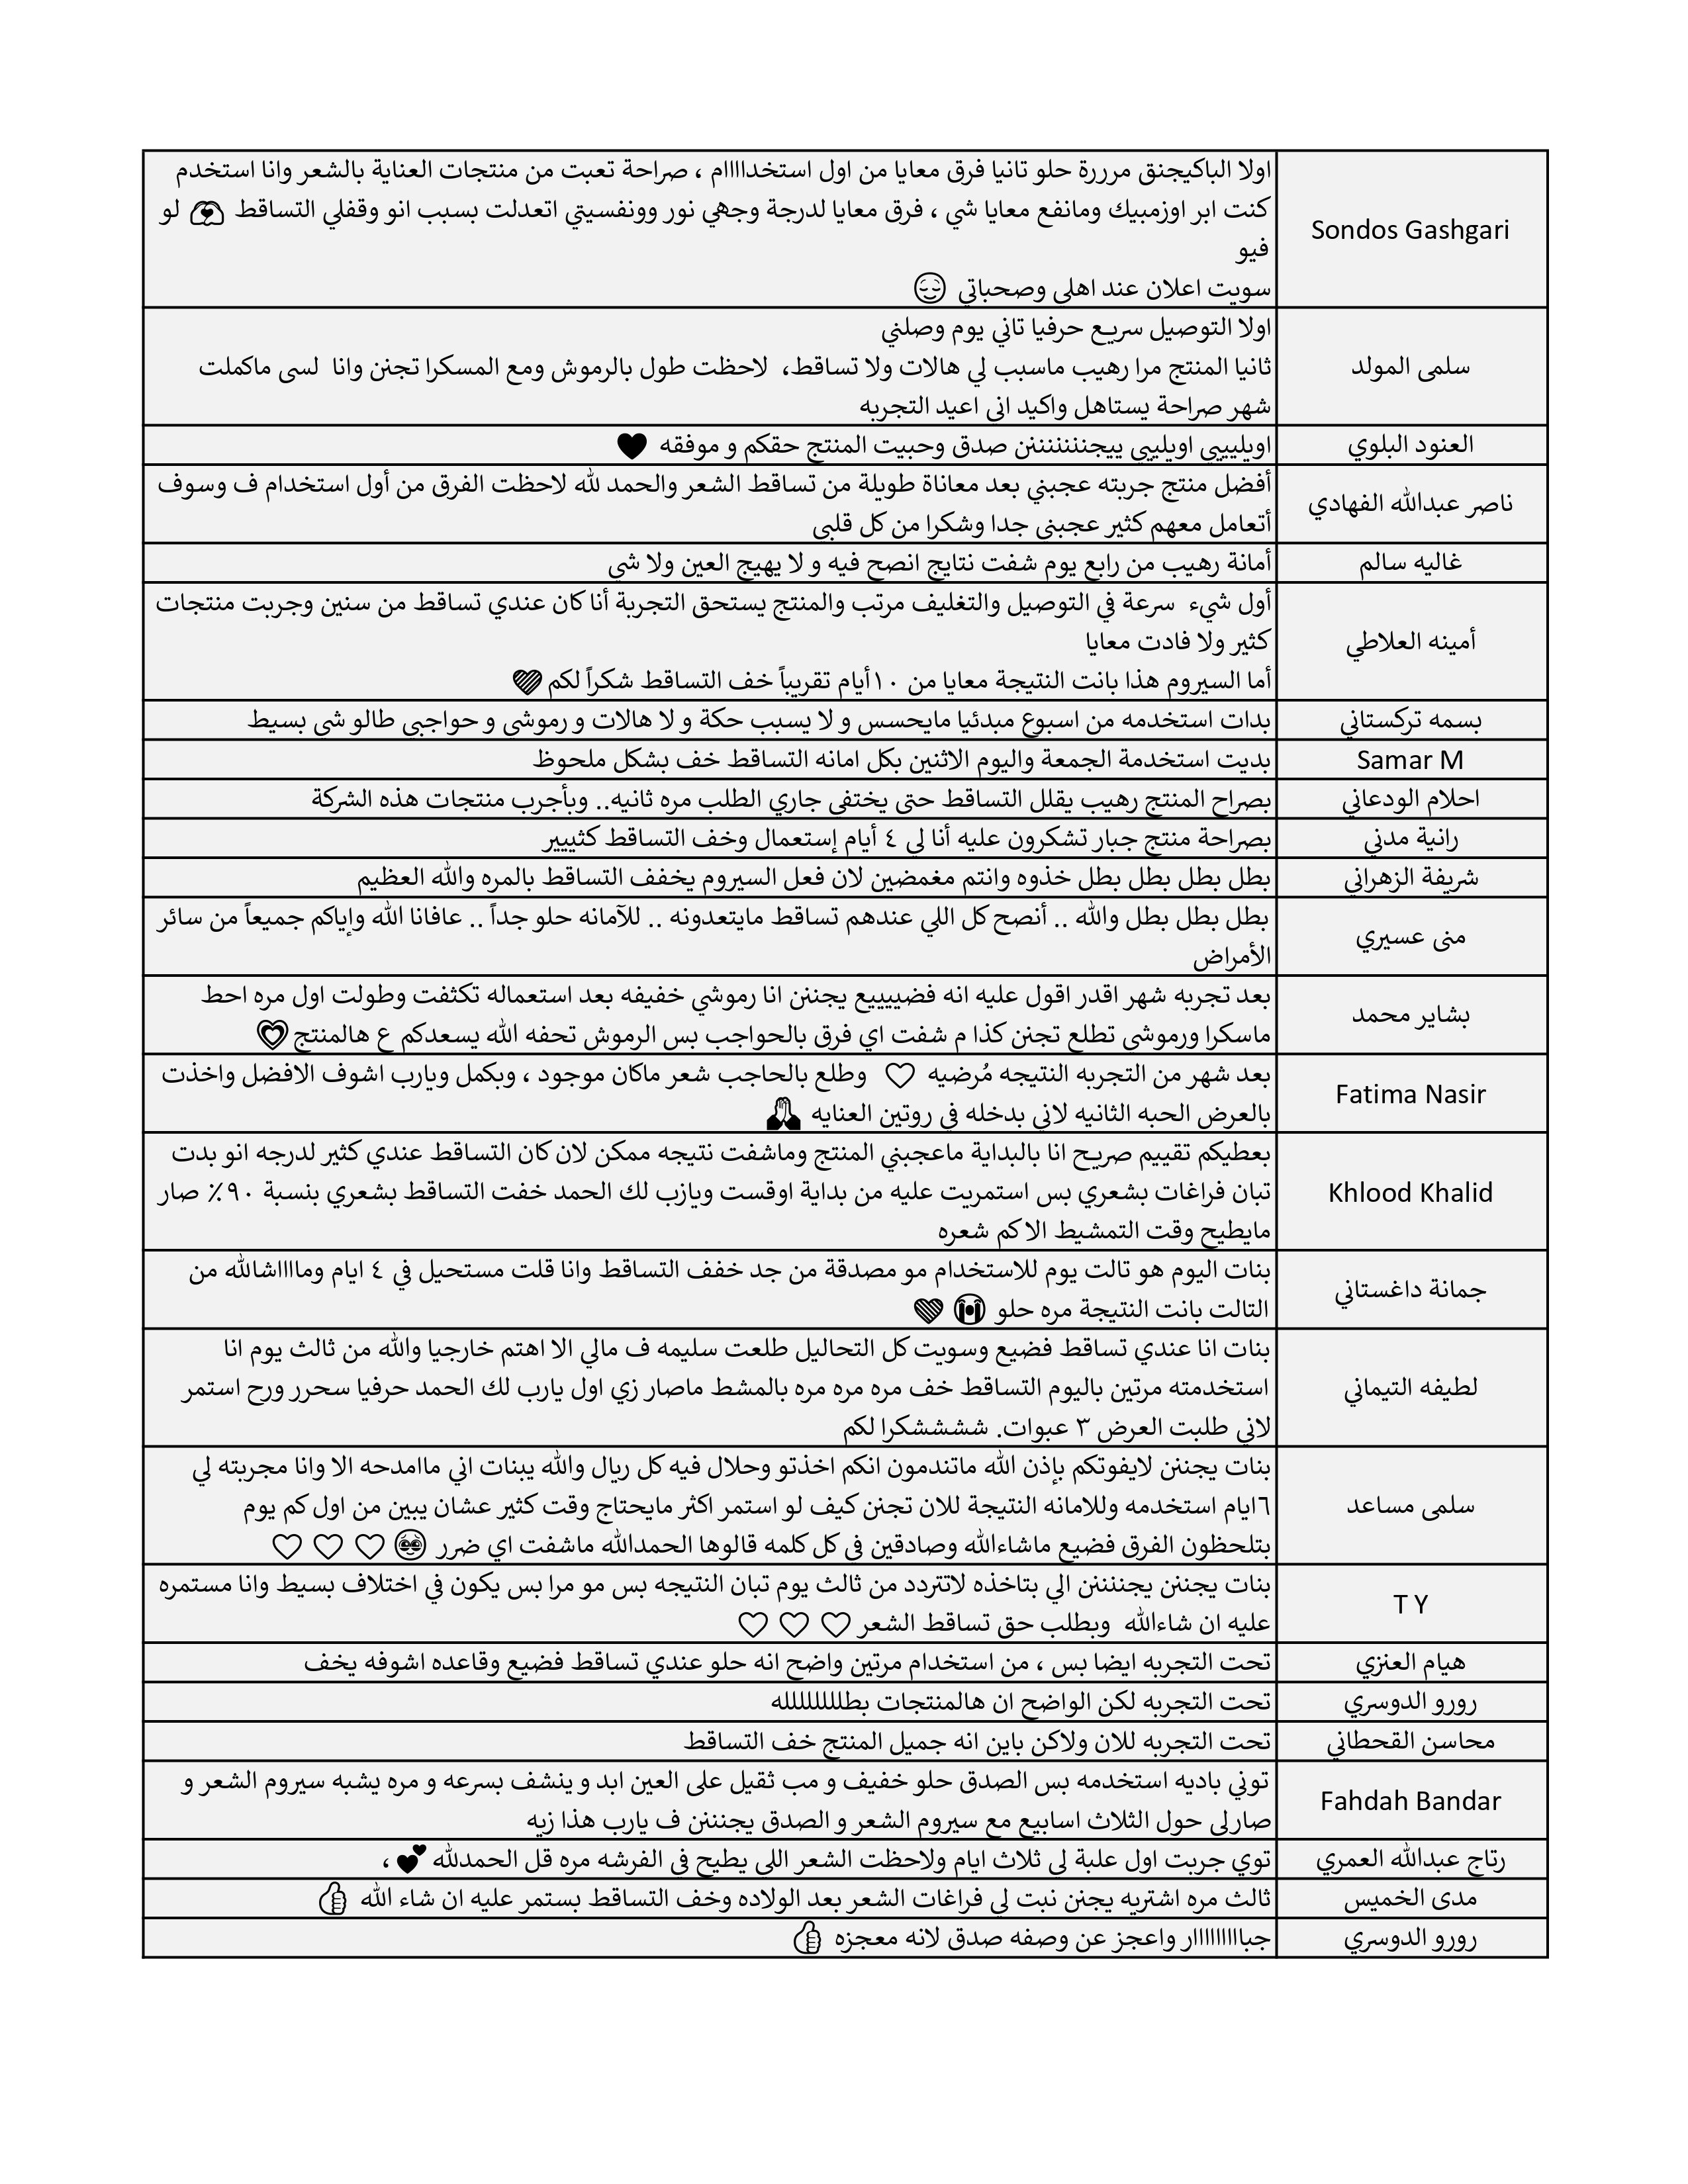 Sondos Gashgari
اولا الباكيجنق مرررة حلو تانيا فرق معايا من اول استخداااام ، صراحة تعبت من منتجات العناية بالشعر وانا استخدم
كنت ابر اوزمبيك ومانفع معايا شي ، فرق معايا لدرجة وجهي نور وونفسيتي اتعدلت بسبب انو وقفلي التساقط 🫶 لو
فيو
سويت اعلان عند اهلي وصحباتي 😌
سلمى المولد
اولا التوصيل سريع حرفيا تاني يوم وصلني
ثانيا المنتج مرا رهيب ماسبب لي هالات ولا تساقط، لاحظت طول بالرموش ومع المسكرا تجنن وانا لسى ماكملت
شهر صراحة يستاهل واكيد اني اعيد التجربه
العنود البلوي
اويلييبي اويليبي ييجنننننننن صدق وحبيت المنتج حقكم و موفقه ♥
ناصر عبدالله الفهادي
أفضل منتج جربته عجبني بعد معاناة طويلة من تساقط الشعر والحمد لله لاحظت الفرق من أول استخدام ف وسوف
أتعامل معهم كثير عجبني جدا وشكرا من كل قلبي
غاليه سالم
أمانة رهيب من رابع يوم شفت نتايج انصح فيه و لا يهيج العين ولا شي
أمينه العلاطي
أول شيء سرعة في التوصيل والتغليف مرتب والمنتج يستحق التجربة أنا كان عندي تساقط من سنين وجربت منتجات
كثير ولا فادت معايا
أما السيروم هذا بانت النتيجة معايا من ١٠أيام تقريباً خف التساقط شكراً لكم 💜
بسمه تركستاني
بدات استخدمه من اسبوع مبدئيا مايحسس و لا يسبب حكة و لا هالات و رموشي و حواجبي طالو شي بسيط
Samar M
بديت استخدمة الجمعة واليوم الاثنين بكل امانه التساقط خف بشكل ملحوظ
احلام الودعاني
بصراح المنتج رهيب يقلل التساقط حتى يختفي جاري الطلب مره ثانيه.. وبأجرب منتجات هذه الشركة
رانية مدني
بصراحة منتج جبار تشكرون عليه أنا لي ٤ أيام إستعمال وخف التساقط كثييير
شريفة الزهراني
بطل بطل بطل بطل خذوه وانتم مغمضين لان فعل السيروم يخفف التساقط بالمره والله العظيم
منى عسيري
بطل بطل بطل والله .. أنصح كل اللي عندهم تساقط مايتعدونه .. للآمانه حلو جداً .. عافانا الله وإياكم جميعاً من سائر
الأمراض
بشاير محمد
بعد تجربه شهر اقدر اقول عليه انه فضييييع يجننن انا رموشي خفيفه بعد استعماله تكثفت وطولت اول مره احط
ماسكرا ورموشي تطلع تجنن كذا م شفت اي فرق بالحواجب بس الرموش تحفه الله يسعدكم ع هالمنتج 💗
Fatima Nasir
بعد شهر من التجربه النتيجه مُرضيه ♡ وطلع بالحاجب شعر ماكان موجود ، وبكمل ويارب اشوف الافضل واخذت
بالعرض الحبه الثانيه لاني بدخله في روتين العنايه 🙏
Khlood Khalid
بعطيكم تقييم صريح انا بالبداية ماعجبني المنتج وماشفت نتيجه ممكن لان كان التساقط عندي كثير لدرجه انو بدت
تبان فراغات بشعري بس استمريت عليه من بداية اوقست ويازب لك الحمد خفت التساقط بشعري بنسبة ٩٠٪ صار
مايطيح وقت التمشيط الاكم شعره
جمانة داغستاني
بنات اليوم هو تالت يوم للاستخدام مو مصدقة من جد خفف التساقط وانا قلت مستحيل في ٤ ايام ومااااشالله من
التالت بانت النتيجة مره حلو 😭 💜
لطيفه التيماني
بنات انا عندي تساقط فضيع وسويت كل التحاليل طلعت سليمه ف مالي الا اهتم خارجيا والله من ثالث يوم انا
استخدمته مرتين باليوم التساقط خف مره مره مره بالمشط ماصار زي اول يارب لك الحمد حرفيا سحرر ورح استمر
لاني طلبت العرض ٣ عبوات. شششششكرا لكم
سلمى مساعد
بنات يجننن لايفوتكم بإذن الله ماتندمون انكم اخذتو وحلال فيه كل ريال والله يبنات اني ماامدحه الا وانا مجربته لي
٦ايام استخدمه وللامانه النتيجة للان تجنن كيف لو استمر اكثر مايحتاج وقت كثير عشان يبين من اول كم يوم
بتلحظون الفرق فضيع ماشاءالله وصادقين في كل كلمه قالوها الحمدالله ماشفت اي ضرر 🥹 ♡ ♡ ♡
T Y
بنات يجننن يجننننن الي بتاخذه لاتتردد من ثالث يوم تبان النتيجه بس مو مرا بس يكون في اختلاف بسيط وانا مستمره
عليه ان شاءالله وبطلب حق تساقط الشعر ♡ ♡ ♡
هيام العنزي
تحت التجربه ايضا بس ، من استخدام مرتين واضح انه حلو عندي تساقط فضيع وقاعده اشوفه يخف
رورو الدوسري
تحت التجربه لكن الواضح ان هالمنتجات بطللللللللله
محاسن القحطاني
تحت التجربه للان ولاكن باين انه جميل المنتج خف التساقط
Fahdah Bandar
توني باديه استخدمه بس الصدق حلو خفيف و مب ثقيل على العين ابد و ينشف بسرعه و مره يشبه سيروم الشعر و
صارلي حول الثلاث اسابيع مع سيروم الشعر و الصدق يجنننن ف يارب هذا زيه
رتاج عبدالله العمري
توي جربت اول علبة لي ثلاث ايام ولاحظت الشعر اللي يطيح في الفرشه مره قل الحمدلله 💕 ،
مدى الخميس
ثالث مره اشتريه يجنن نبت لي فراغات الشعر بعد الولاده وخف التساقط بستمر عليه ان شاء الله 👍
رورو الدوسري
جبااااااااار واعجز عن وصفه صدق لانه معجزه 👍